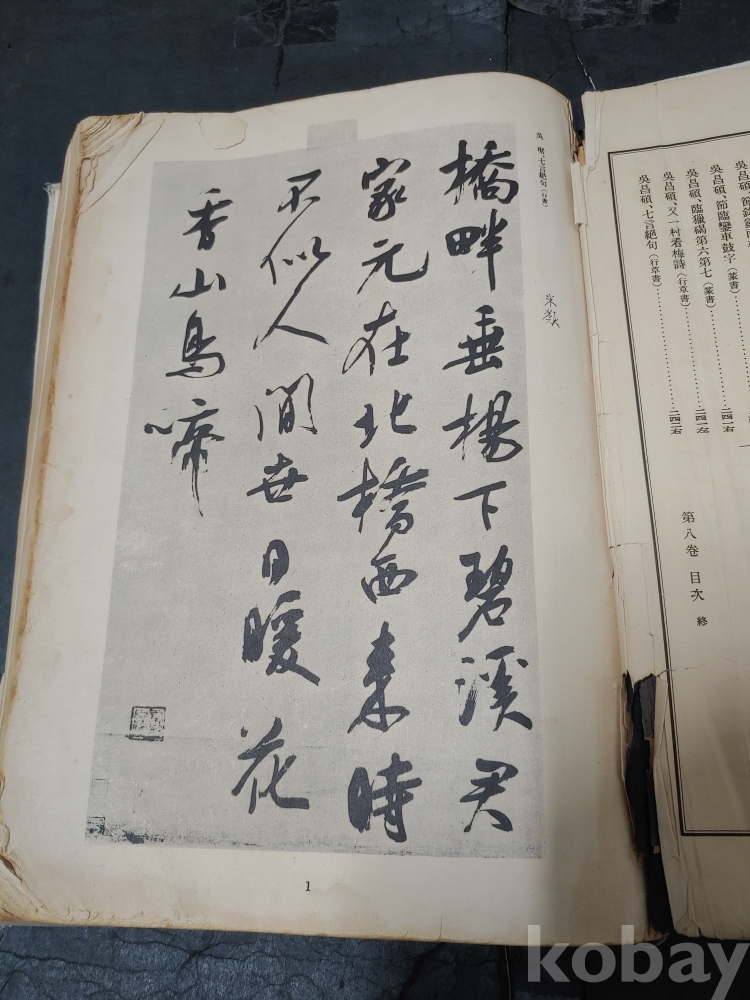 吳昌碩、節臨鑾車鼓字(篆書)
吳昌碩、臨獵碣第六第七(篆書)……二四一右
吳昌碩、又一村看梅詩(行草書)……二四一左
吳昌碩、七言絕句(行草書)……二四二右
第八卷 目次 終
吳 琚、七言絕句(行書)
橋畔垂楊下碧溪君
家元在北橋西來時
不似人間世日暖花
香山鳥啼
1
kobay